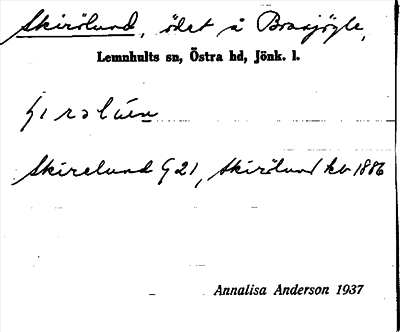 Skirölund, ödet å Boaxjögle,
Lemnhults sn, Östra hd, Jönk. l.
Skirelund G 21, Skirölund kb 1886
Annalisa Anderson 1937